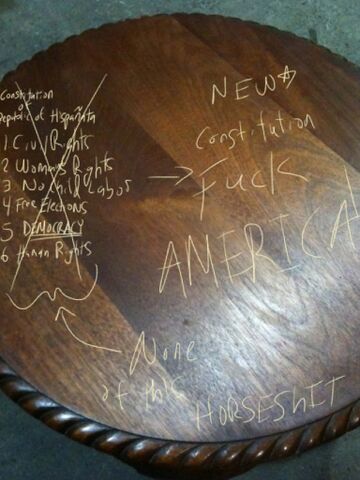 Constitution
of
Republic Hispañata
1. Civil Rights
2 Womens Rights
3 No Child Labor
4 Free Elections
5 DEMOCRACY
6 Human Rights
NEW
Constitution
→ Fuck
AMERICA
None
of this
HORSEShIT